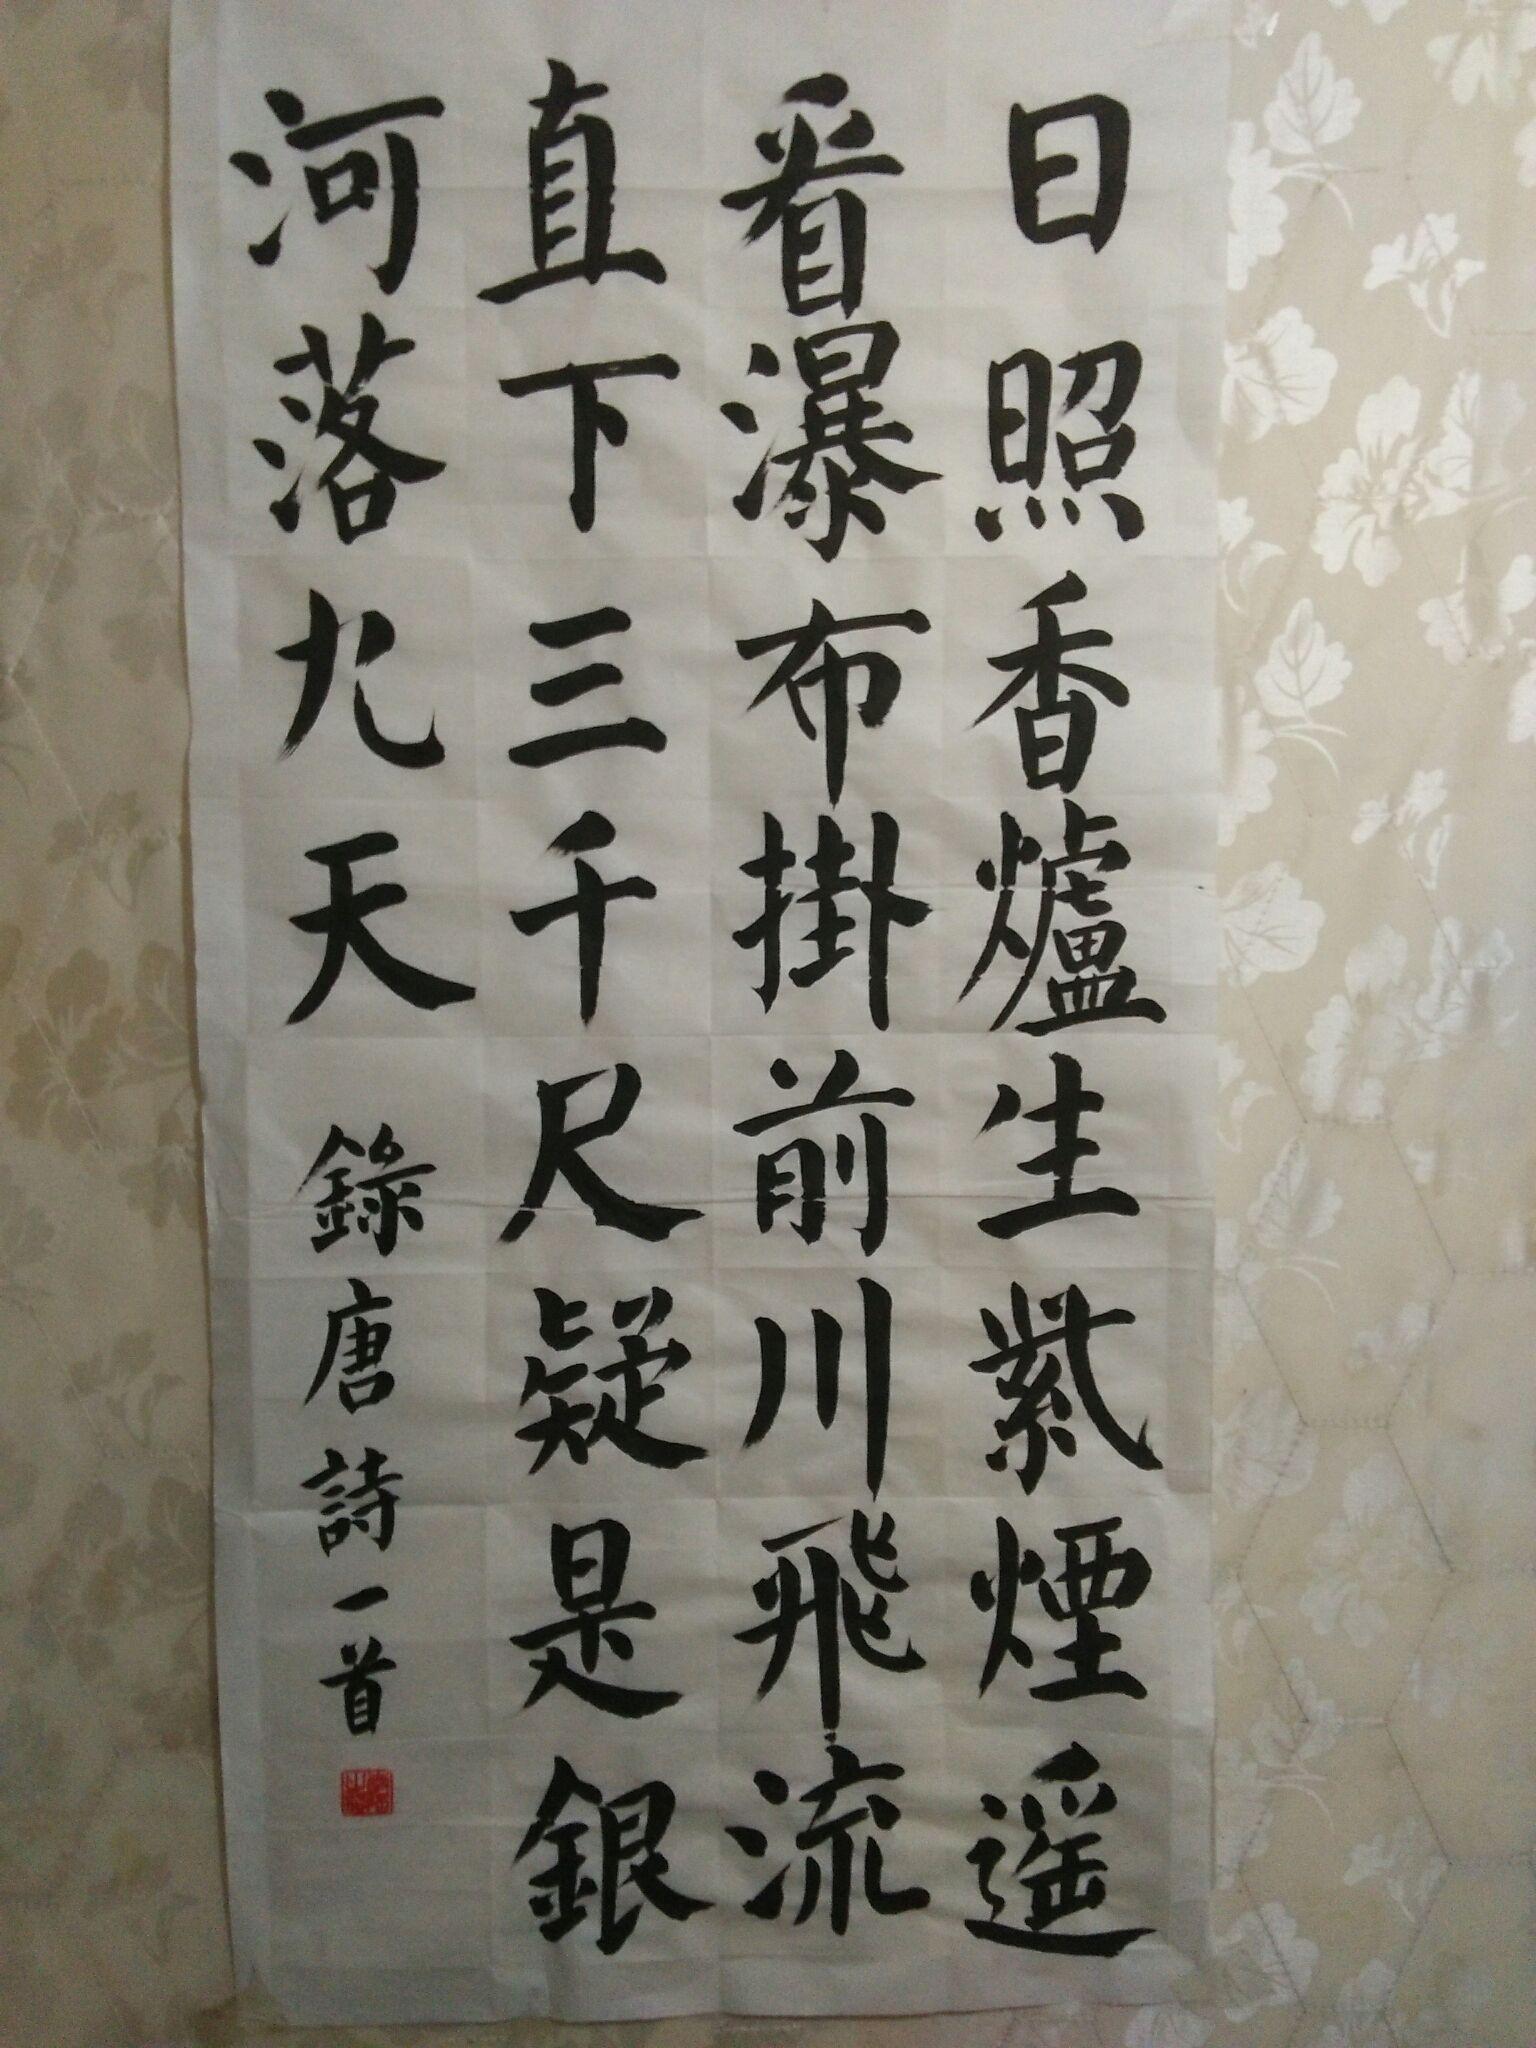 日照香爐生紫煙遥
看瀑布掛前川飛流
直下三千尺疑是銀
河落九天 錄唐詩一首